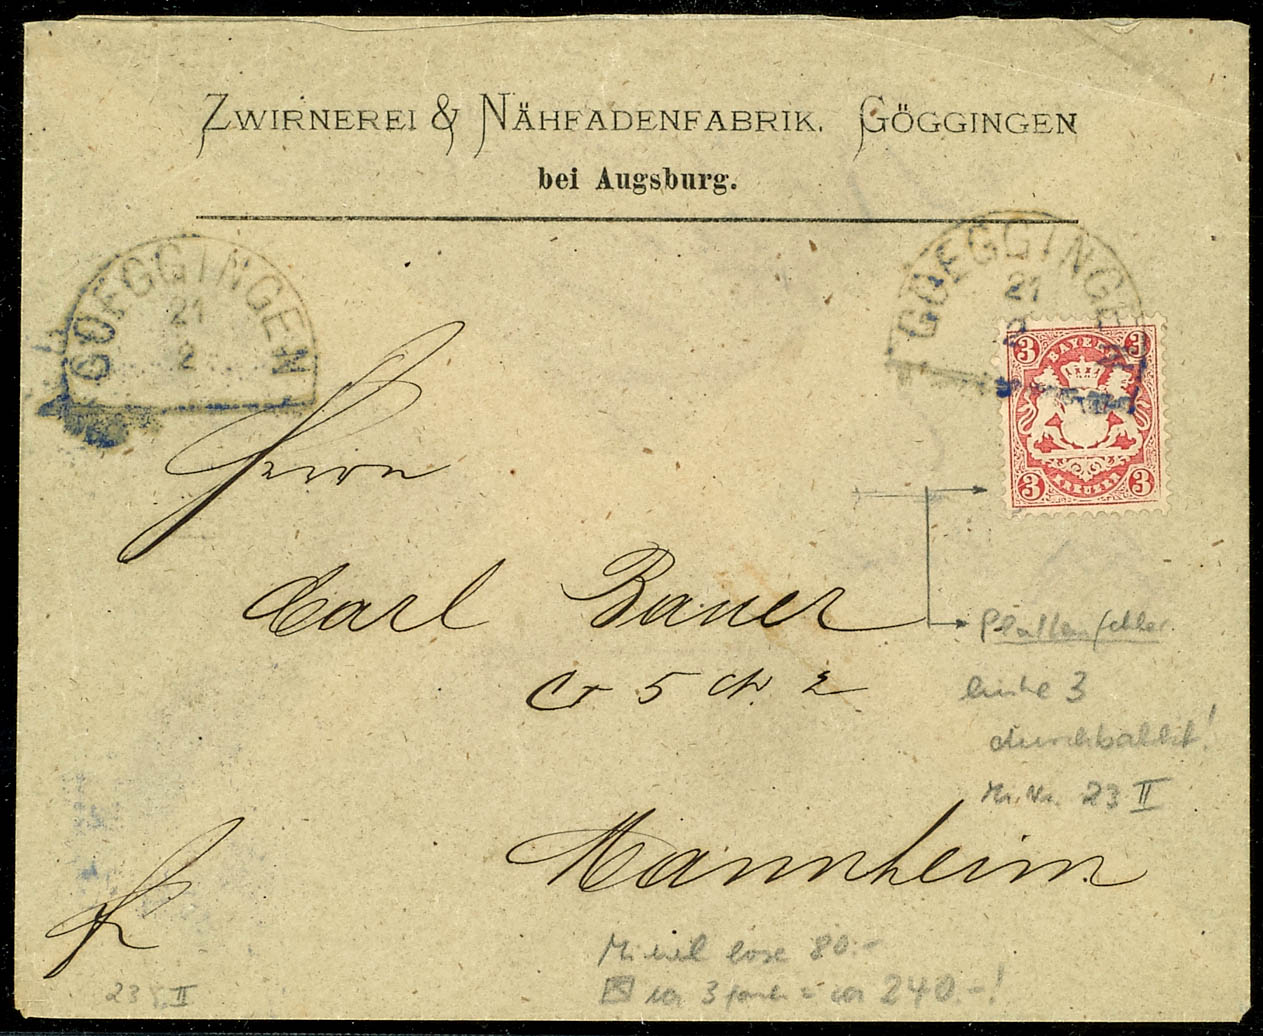 ZWIRNEREI & NÄHFADENFABRIK. GÖGGINGEN
bei Augsburg.
GOEGGINGEN
21
2
GOEGGINGEN
21
2
3 BAYERN 3
3 KREUZER 3
Herrn
Carl Bauer
5 2
Mannheim
fr
Plattenfehler
linke 3
Mi. Nr. 23 II
Michel lose 80.-
ca 3 fach = ca 240.-!
23 II